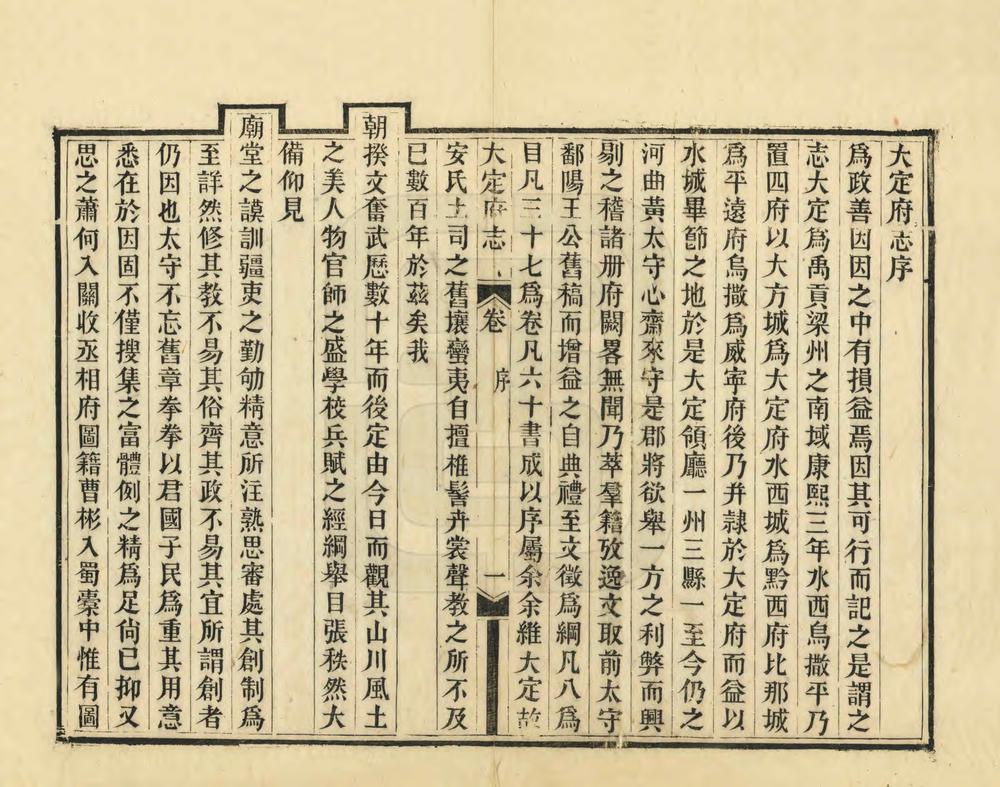 大定府志序
爲政善因因之中有損益焉因其可行而記之是謂之
志大定爲禹貢梁州之南域康熙三年水西烏撒平乃
置四府以大方城爲大定府水西城爲黔西府比那城
爲平遠府烏撒爲威寧府後乃幷隷於大定府而益以
水城畢節之地於是大定領廳一州三縣一至今仍之
河曲黃太守心齋來守是郡將欲舉一方之利弊而興
剔之稽諸册府闕畧無聞乃萃羣籍攷逸文取前太守
鄱陽王公舊稿而增益之自典禮至文徵爲綱凡八爲
目凡三十七爲卷凡六十書成以序屬余余維大定故
大定府志
卷
序
一
安氏土司之舊壤蠻夷自擅椎髻卉裳聲教之所不及
已數百年於茲矣我
朝揆文奮武歷數十年而後定由今日而觀其山川風土
之美人物官師之盛學校兵賦之經綱舉目張秩然大
備仰見
廟堂之謨訓疆吏之勤劬精意所注熟思審處其創制爲
至詳然修其教不易其俗齊其政不易其宜所謂創者
仍因也太守不忘舊章拳拳以君國子民爲重其用意
悉在於因固不僅搜集之富體例之精爲足尙已抑又
思之蕭何入關收丞相府圖籍曹彬入蜀橐中惟有圖